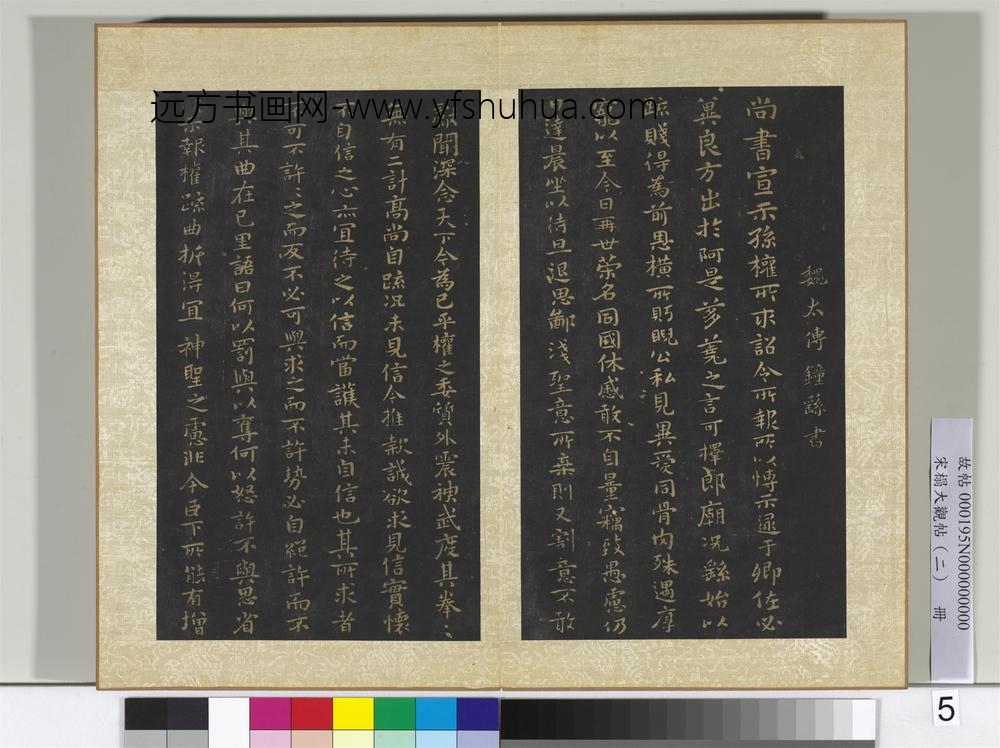 魏太傅鍾繇書
尚書宣示孫權所求詔令所報所以博示逮于卿佐必
異良方出於阿是芻蕘之言可擇郎廟況繇始以
踈賤得為前恩橫所眄睨公私見異愛同骨肉殊遇厚
以至今日再世榮名同國休慼敢不自量竊致愚慮仍
達晨坐以待旦退思鄙淺聖意所棄則又割意不敢
聞深念天下今為已平權之委質外震神武度其拳〻
無有二計高尚自疏況未見信今推款誠欲求見信實懷
不自信之心亦宜待之以信而當護其未自信也其所求者
不可不許〻之而反不必可與求之而不許勢必自絕許而不
與其曲在己里語曰何以罰與以奪何以怒許不與思省
報權疏曲折得宜神聖之慮非今臣下所能有增
远方书画网-www.yfshuhua.com
故帖 000195N000000000
宋榻大觀帖（二） 冊
5